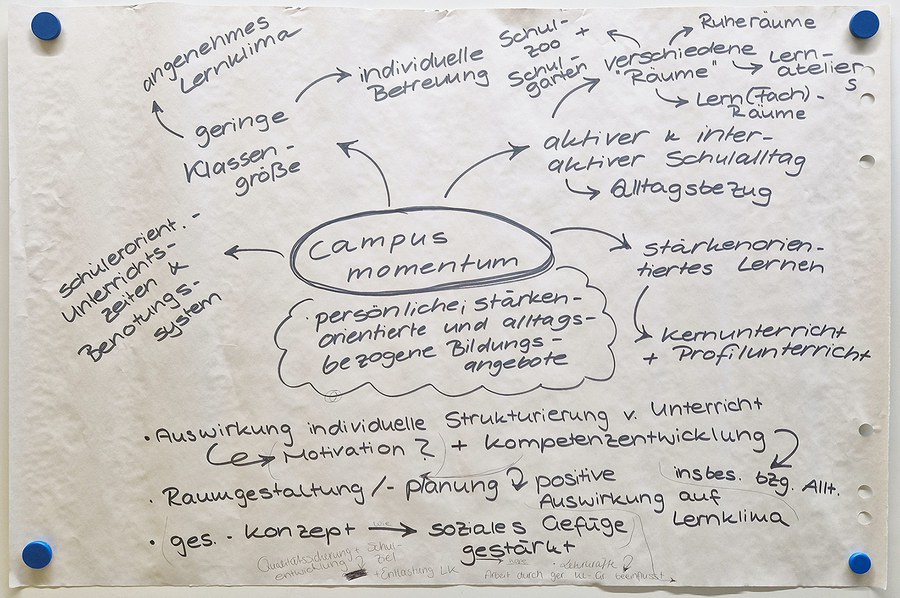 angenehmes
Lernklima
individuelle
Betreuung
geringe
Klassen-
größe
Schul-
zoo +
Schul-
garten
verschiedene
"Räume"
Ruheräume
Lern-
atelier
s
Lern(Fach)-
Räume
aktiver & inter-
aktiver Schulalltag
Alltagsbezug
schülerorient.-
Unterrichts-
zeiten &
Benotungs-
system
Campus
momentum
persönliche, stärken-
orientierte und alltags-
bezogene Bildungs-
angebote
stärkenorien-
tiertes Lernen
Kernunterricht
+ Profilunterricht
• Auswirkung individuelle Strukturierung v. Unterricht
Motivation ? + Kompetenzentwicklung
insbes. bzg. Allt.
• Raumgestaltung /- planung
positive
Auswirkung auf
Lernklima
• ges. - Konzept → soziales Gefüge
gestärkt
Qualitätssicherung + Schul-
entwicklung ziel
+ Entlastung LK
• Lehrkräfte
Arbeit durch ger. Kl-Gr beeinflusst